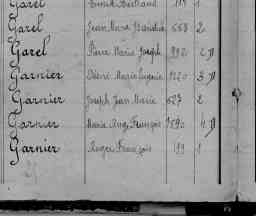 Garel Emile Bertrand 1
Garel Jean Marie 668 2
Garel Pierre Marie Joseph 992 2 D
Garnier Désiré Marie Eugène 1220 3 D
Garnier Joseph Jean Marie 627 2
Garnier Marie Ange François 1590 4 D
Garnier Roger François 99 1 1